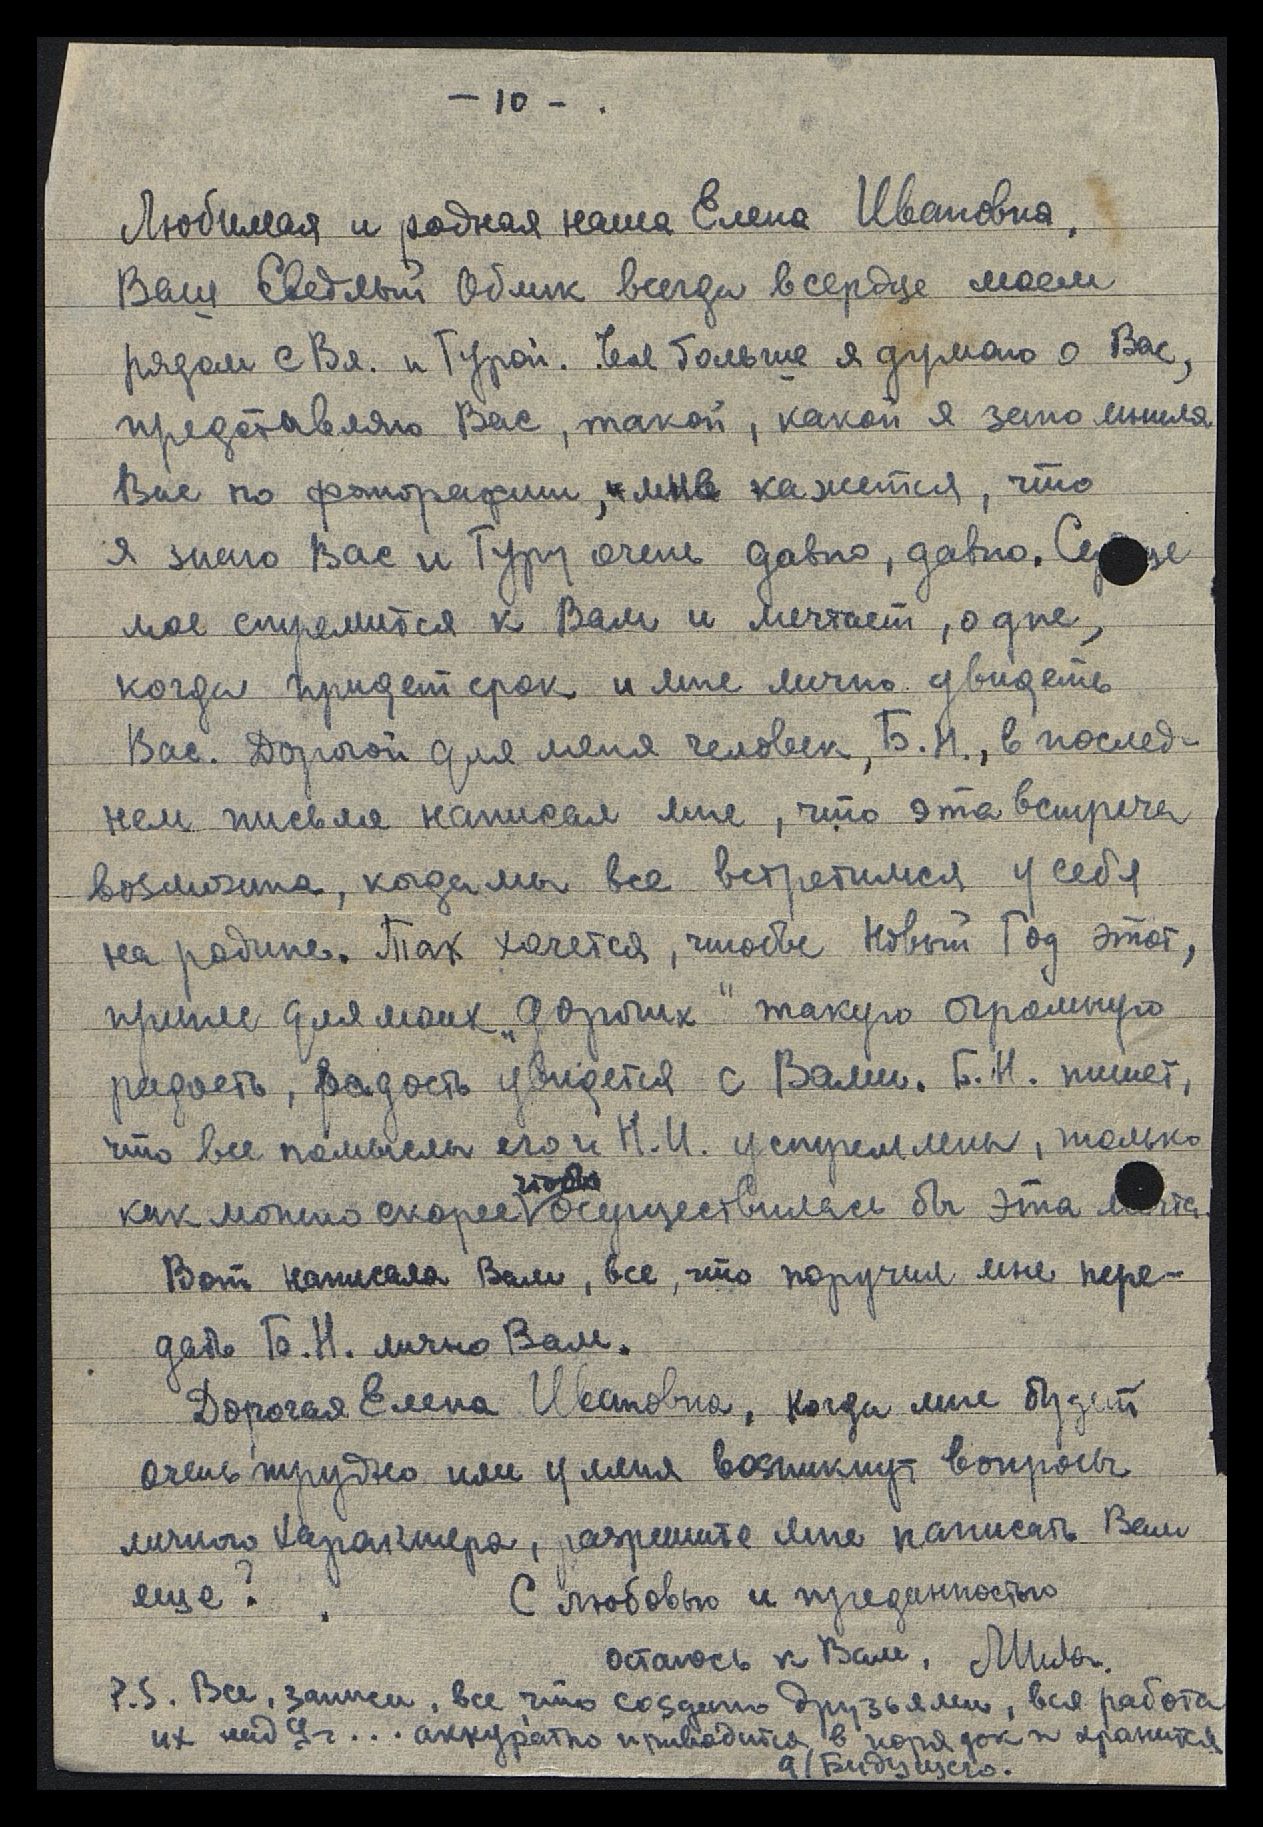 - 10 - .
Любимая и родная наша Елена Ивановна,
Ваш Светлый Облик всегда в сердце моем
рядом с Вл. и Гурой. Чем больше я думаю о Вас,
представляю Вас, такой, какой я запомнила
Вас по фотографии, мне кажется, что
я знаю Вас и Гуру очень давно, давно. Сердце
мое стремится к Вам и мечтает, о дне,
когда придет срок и мне лично увидеть
Вас. Дорогой для меня человек, Б.Н., в послед-
нем письме написал мне, что эта встреча
возможна, когда мы все встретимся у себя
на родине. Так хочется, чтобы Новый Год этот,
принес для моих „дорогих" такую огромную
радость, радость увидется с Вами. Б.Н. пишет,
что все помыслы его и Н.И. устремлены, только
чтобы
как можно скорее осуществилась бы эта мечта.
Вот написала Вам, все, что поручил мне пере-
дать Б.Н. лично Вам.
Дорогая Елена Ивановна, когда мне будет
очень трудно или у меня возникнут вопросы
личного характера, разрешите мне написать Вам
еще?
С любовью и преданностью
остаюсь к Вам, Мила.
P.S. Все, записи, все что создано друзьями, вся работа
их над ... аккуратно приводится в порядок и хранится
д/Будущего.